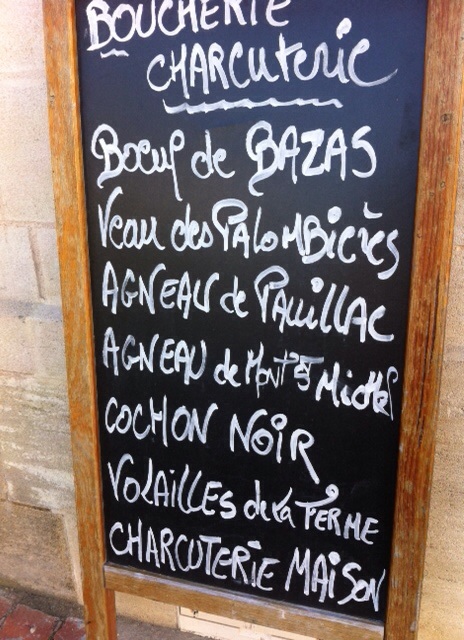 BOUCHERIE
CHARCuterie
Boeuf de BAZAS
Veau des PALOMBières
AGNEAU de PAuiLLAC
AGNEAU de Mont St Michel
COCHON NOiR
VOLAiLLES de La FERME
CHARCUTERiE MAiSON